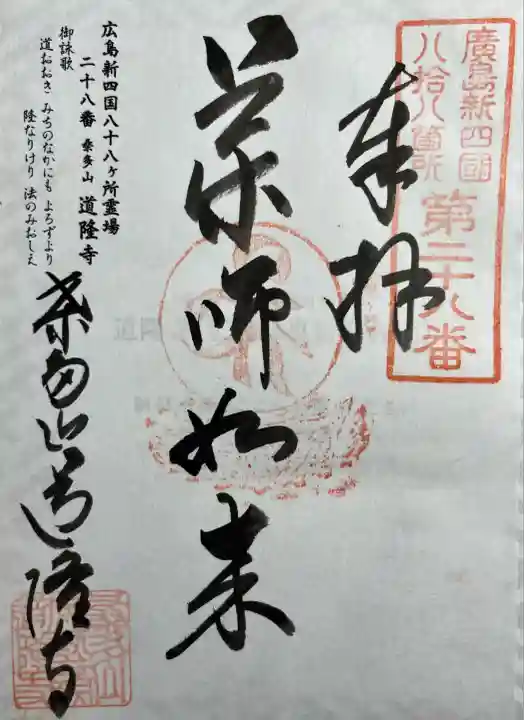 廣島新四國
八拾八箇所
第二十八番
奉拝
薬師如来
広島新四国八十八ヶ所霊場
二十八番 桑多山 道隆寺
御詠歌
道おおき みちのなかにも よろずより
陸なりけり 法のみおしえ
桑多山道隆寺